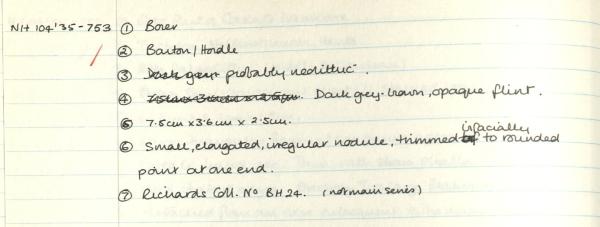 NH 104'35-753 ① Borer
② Barton/Hordle
③ Dark grey probably neolithic.
④ 7.5cm x 3.6cm x 2.5cm. Dark grey-brown, opaque flint.
⑤ 7.5cm x 3.6cm x 2.5cm.
⑥ Small, elongated, irregular nodule, trimmed bifacially to rounded
point at one end.
⑦ Richards Coll. No BH24. (not main series)